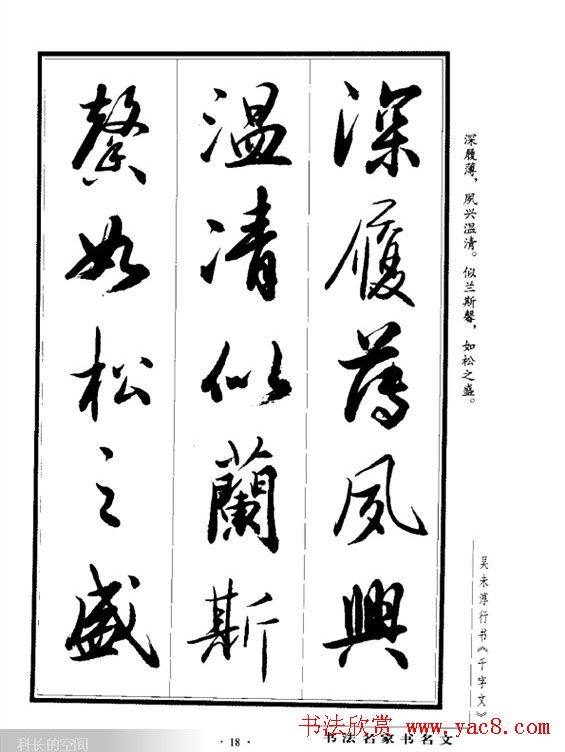 深履薄夙興
温凊似蘭斯
馨如松之盛
深履薄，夙兴温凊。似兰斯馨，如松之盛。
吴未淳行书《千字文》
·18·
书法名家书名文
书法欣赏 www.yac8.com
科长的空间